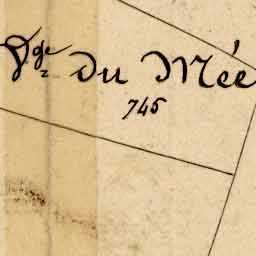 Vge Du Mée
745